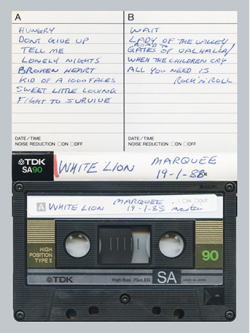 A
HUNGRY
DONT GIVE UP
TELL ME
LONELY NIGHTS
BROKEN HEART
KID OF A 1000 FACES
SWEET LITTLE LOVING
FIGHT TO SURVIVE
DATE/TIME
NOISE REDUCTION ON OFF
B
WAIT
LADY OF THE VALLEY
GATES OF VALHALLA/
WHEN THE CHILDREN CRY
ALL YOU NEED IS
ROCK'N'ROLL
DATE/TIME
NOISE REDUCTION ON OFF
TDK
SA90
WHITE LION MARQUEE
19-1-88
A WHITE LION MARQUEE
19-1-88
HIGH
POSITION
TYPE II
90
TDK
SA